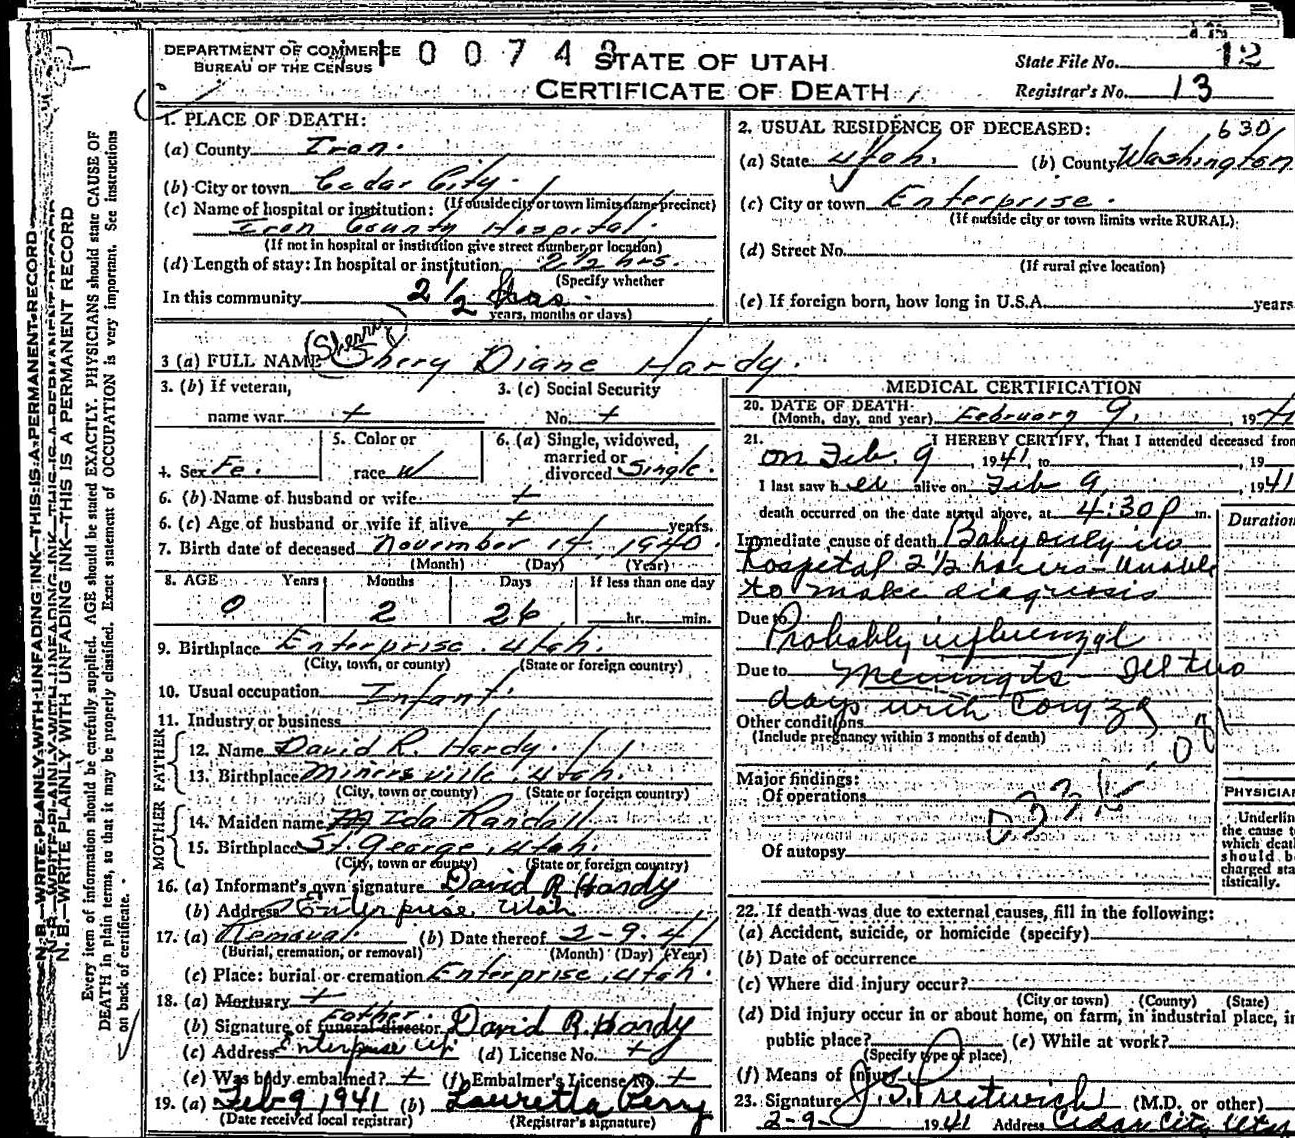 DEPARTMENT OF COMMERCE
BUREAU OF THE CENSUS
STATE OF UTAH
CERTIFICATE OF DEATH
State File No. 12
Registrar's No. 13
N. B.—WRITE PLAINLY WITH UNFADING INK—THIS IS A PERMANENT RECORD
N. B.—WRITE PLAINLY WITH UNFADING INK—THIS IS A PERMANENT RECORD
Every item of information should be carefully supplied. AGE should be stated EXACTLY. PHYSICIANS should state CAUSE OF
DEATH in plain terms, so that it may be properly classified. Exact statement of OCCUPATION is very important. See instructions
on back of certificate.
1. PLACE OF DEATH:
(a) County Iron.
(b) City or town Cedar City.
(If outside city or town limits name precinct)
(c) Name of hospital or institution:
Iron County Hospital.
(If not in hospital or institution give street number or location)
(d) Length of stay: In hospital or institution 2 1/2 hrs.
(Specify whether
In this community 2 1/2 hrs.
years, months or days)
2. USUAL RESIDENCE OF DECEASED: 630
(a) State Utah. (b) County Washington
(c) City or town Enterprise.
(If outside city or town limits write RURAL)
(d) Street No.
(If rural give location)
(e) If foreign born, how long in U.S.A. years
(Sherry)
3 (a) FULL NAME Shery Diane Hardy.
3. (b) If veteran,
name war +
3. (c) Social Security
No. +
4. Sex Fe.
5. Color or
race W
6. (a) Single, widowed,
married or
divorced Single.
6. (b) Name of husband or wife +
6. (c) Age of husband or wife if alive + years.
7. Birth date of deceased November 14, 1940.
(Month) (Day) (Year)
8. AGE Years Months Days If less than one day
0 2 26 hr. min.
9. Birthplace Enterprise, Utah.
(City, town, or county) (State or foreign country)
10. Usual occupation Infant.
11. Industry or business
FATHER
12. Name David R. Hardy.
13. Birthplace Minersville, Utah.
(City, town or county) (State or foreign country)
MOTHER
14. Maiden name Ida Randall
15. Birthplace St. George, Utah.
(City, town or county) (State or foreign country)
16. (a) Informant's own signature David R Hardy
(b) Address Enterprise Utah
17. (a) Removal. (b) Date thereof 2-9-41
(Burial, cremation, or removal) (Month) (Day) (Year)
(c) Place: burial or cremation Enterprise, Utah.
18. (a) Mortuary +
Father.
(b) Signature of funeral director David R. Hardy
(c) Address Enterprise Ut. (d) License No. +
(e) Was body embalmed? + (f) Embalmer's License No. +
19. (a) Feb 9 1941 (b) Lauretta Perry
(Date received local registrar) (Registrar's signature)
MEDICAL CERTIFICATION
20. DATE OF DEATH
(Month, day, and year) February 9, 1941
21. I HEREBY CERTIFY, That I attended deceased from
on Feb. 9, 1941, to , 19
I last saw her alive on Feb 9, 1941
death occurred on the date stated above, at 4:30 p m.
Duration
Immediate cause of death Baby only in
hospital 2 1/2 hours - Unable
to make diagnosis
Due to Probably influenzal
Due to Meningitis Ill two
days with Coryza
Other conditions
(Include pregnancy within 3 months of death)
Major findings:
Of operations
Of autopsy
PHYSICIAN
Underline
the cause to
which death
should be
charged sta-
tistically.
22. If death was due to external causes, fill in the following:
(a) Accident, suicide, or homicide (specify)
(b) Date of occurrence
(c) Where did injury occur?
(City or town) (County) (State)
(d) Did injury occur in or about home, on farm, in industrial place, in
public place? (e) While at work?
(Specify type of place)
(f) Means of injury
23. Signature J. S. Prestwich (M.D. or other)
2-9- 1941 Address Cedar City, Utah